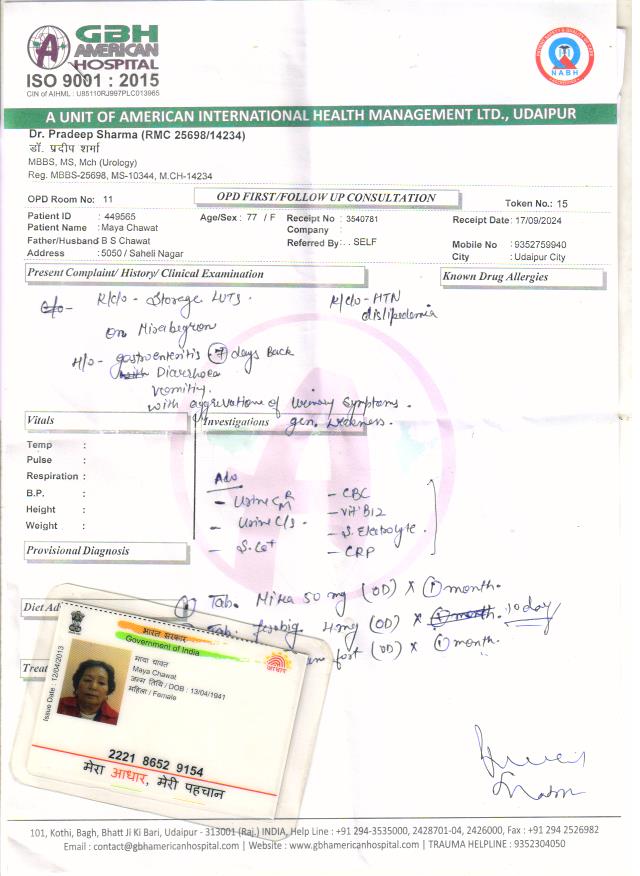 GBH
AMERICAN
HOSPITAL
ISO 9001 : 2015
CIN of AIHML : U85110RJ997PLC013965
NABH
A UNIT OF AMERICAN INTERNATIONAL HEALTH MANAGEMENT LTD., UDAIPUR
Dr. Pradeep Sharma (RMC 25698/14234)
डॉ. प्रदीप शर्मा
MBBS, MS, Mch (Urology)
Reg. MBBS-25698, MS-10344, M.CH-14234
OPD Room No: 11 OPD FIRST/FOLLOW UP CONSULTATION Token No.: 15
Patient ID : 449565 Age/Sex : 77 / F Receipt No : 3540781 Receipt Date: 17/09/2024
Patient Name : Maya Chawat Company :
Father/Husband B S Chawat Referred By: . . SELF Mobile No : 9352759940
Address : 5050 / Saheli Nagar City : Udaipur City
Present Complaint/ History/ Clinical Examination Known Drug Allergies
K/c/o - Storage LUTS. K/c/o - HTN
dislipedemia
on Mirabegron
H/o - gastroenteritis 7 days Back
Diarrhoea
vomitiy.
with aggrevation of Urinary Symptoms.
Vitals Investigations gen. weakness.
Temp :
Pulse :
Respiration :
B.P. :
Height :
Weight :
Adv
- Urine R/M - CBC
- Urine C/s - Vit B12
- S. Cr+ - S. Electrolyte.
- CRP
Provisional Diagnosis
Diet Ad
Tab. Mira 50 mg (OD) X 1 month.
Tab. 4mg (OD) X 10 day
fort (OD) X 1 month.
Treat
Issue Date : 12/04/2013
भारत सरकार
Government of India
आधार
माया चावत
Maya Chawat
जन्म तिथि / DOB : 13/04/1941
महिला / Female
2221 8652 9154
मेरा आधार, मेरी पहचान
101, Kothi, Bagh, Bhatt Ji Ki Bari, Udaipur - 313001 (Raj.) INDIA, Help Line : +91 294-3535000, 2428701-04, 2426000, Fax : +91 294 2526982
Email : contact@gbhamericanhospital.com | Website : www.gbhamericanhospital.com | TRAUMA HELPLINE : 9352304050